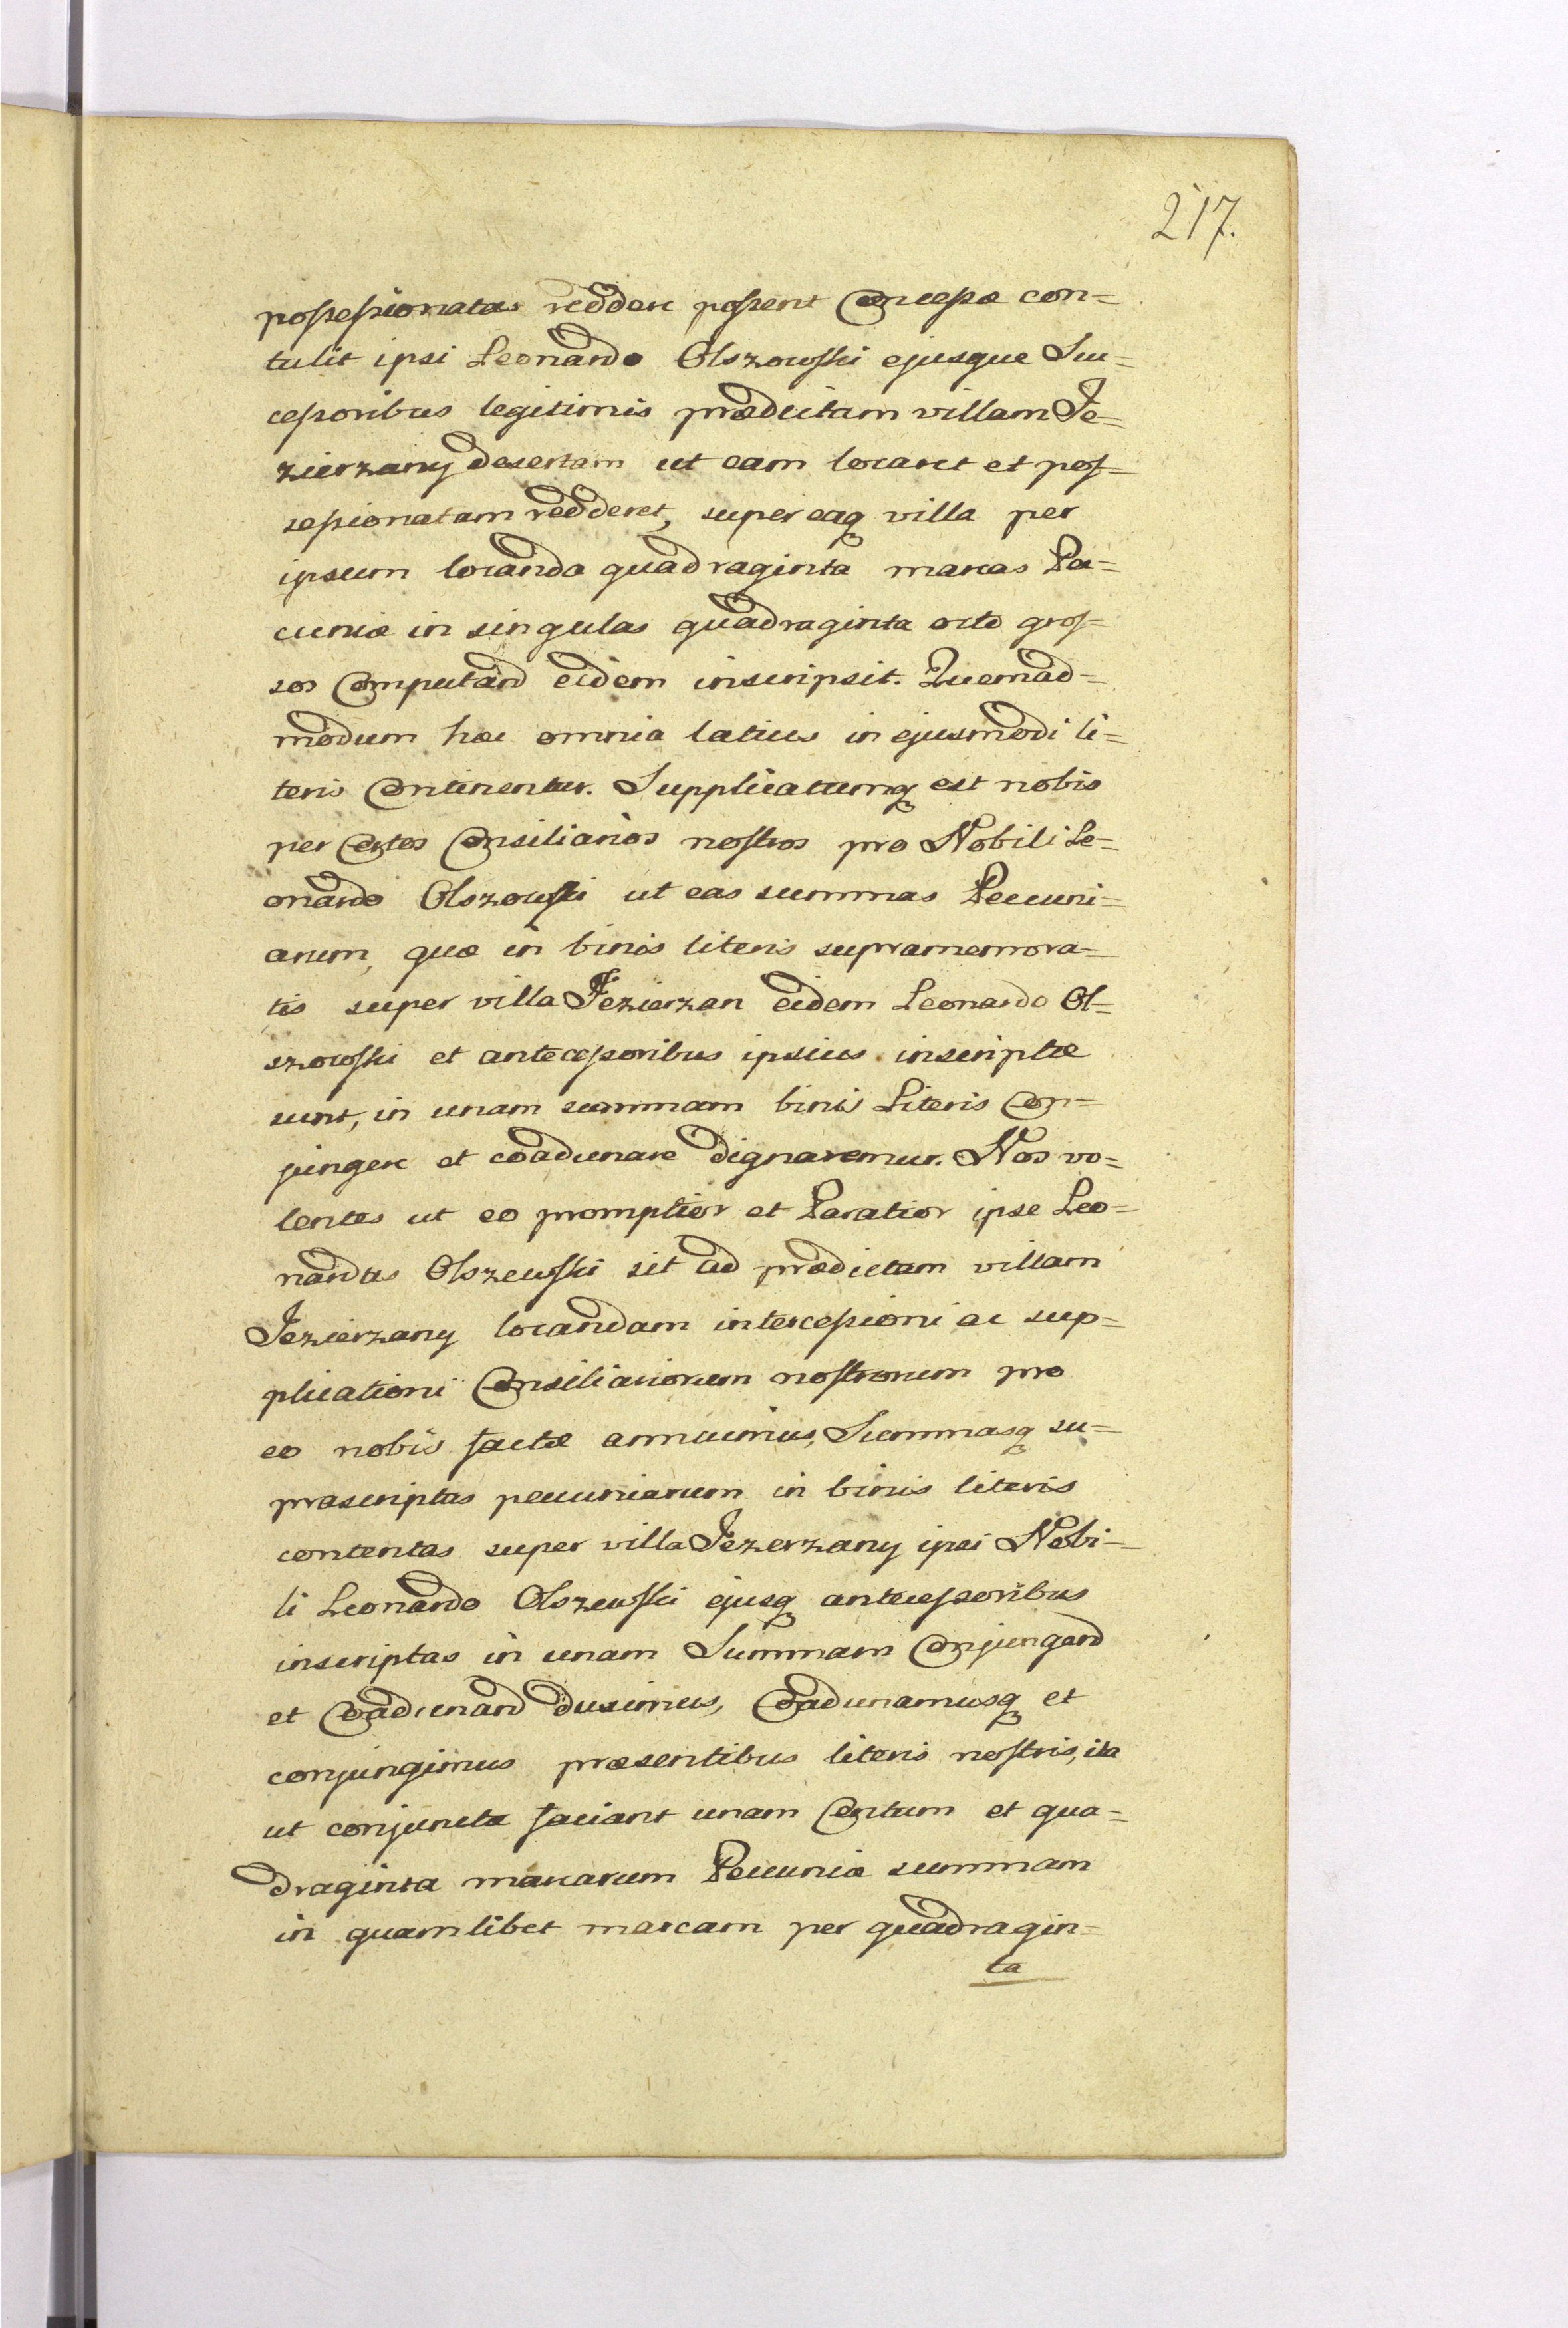 217.
possessionatas reddere possent Concessæ con=
tulit ipsi Leonardo Olszowski ejusque Suc=
cessoribus legitimis prædictam villam Je=
zierzany desertam ut eam locaret et pos=
sessionatam redderet, super eaq villa per
ipsum locanda quadraginta marcas Pe=
cuniæ in singulas quadraginta octo gros=
sos Computand eidem inscripsit. Quemad=
modum hæc omnia latius in ejusmodi li=
teris Continentur. Supplicatumq est nobis
per Certos Consiliarios nostros pro Nobili Le=
onardo Olszowski ut eas summas Pecuni=
arum, quæ in binis literis supramemora=
tis super villa Jezierzan eidem Leonardo Ol=
szowski et antecessoribus ipsius inscriptæ
sunt, in unam summam binis Literis Con=
jungere et coadunare dignaremur. Nos vo=
lentes ut eo promptior et Paratior ipse Leo=
nardus Olszewski sit ad prædictam villam
Jezierzany locandam intercessioni ac sup=
plicationi Consiliariorum nostrorum pro
eo nobis factæ annuimus, Summasq su=
prascriptas pecuniarum in binis literis
contentas super villa Jezerzany ipsi Nobi=
li Leonardo Olszewski ejusq antecessoribus
inscriptas in unam Summam Conjungend
et Coadunand duximus, Coadunamusq et
conjungimus præsentibus literis nostris, ita
ut conjuncta faciant unam Centum et qua=
draginta marcarum Pecuniæ summam
in quamlibet marcam per quadragin=
ta